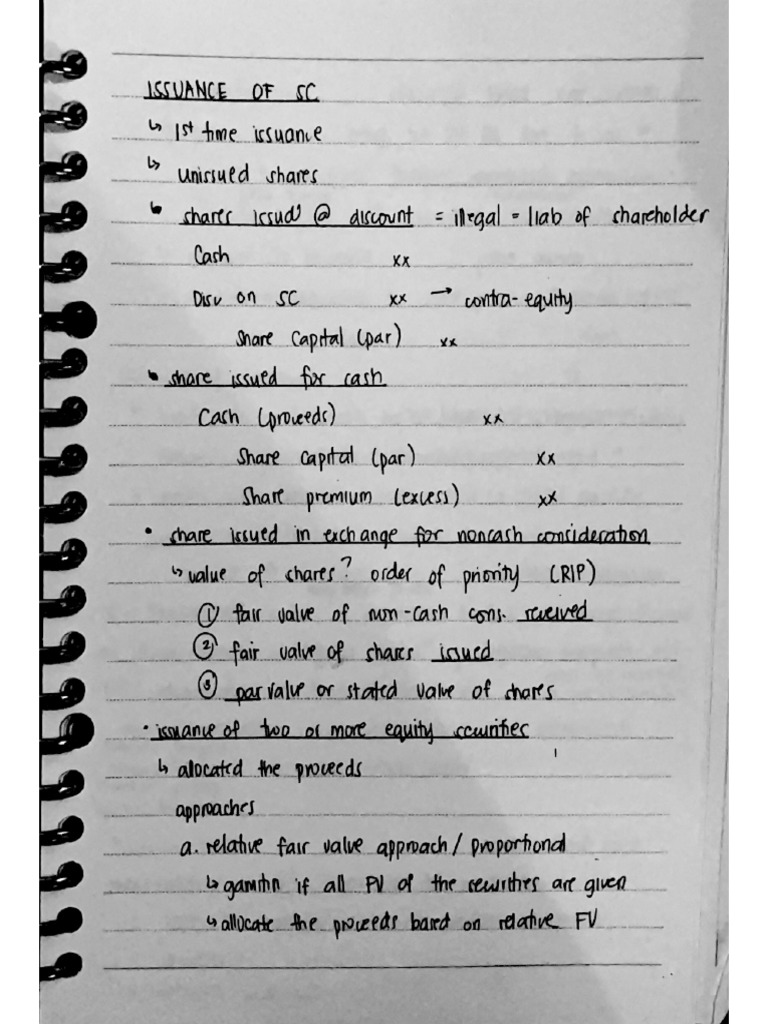 ISSUANCE OF SC
↳ 1st time issuance
↳ unissued shares
• shares issued @ discount = illegal = liab of shareholder
Cash xx
Disc on SC xx → contra-equity
Share Capital (par) xx
• share issued for cash
Cash (proceeds) xx
Share capital (par) xx
Share premium (excess) xx
• share issued in exchange for noncash consideration
↳ value of shares? order of priority (RIP)
① fair value of non-cash cons. received
② fair value of shares issued
③ par value or stated value of shares
• issuance of two or more equity securities
↳ allocated the proceeds
approaches
a. relative fair value approach / proportional
↳ gamitin if all FV of the securities are given
↳ allocate the proceeds based on relative FV